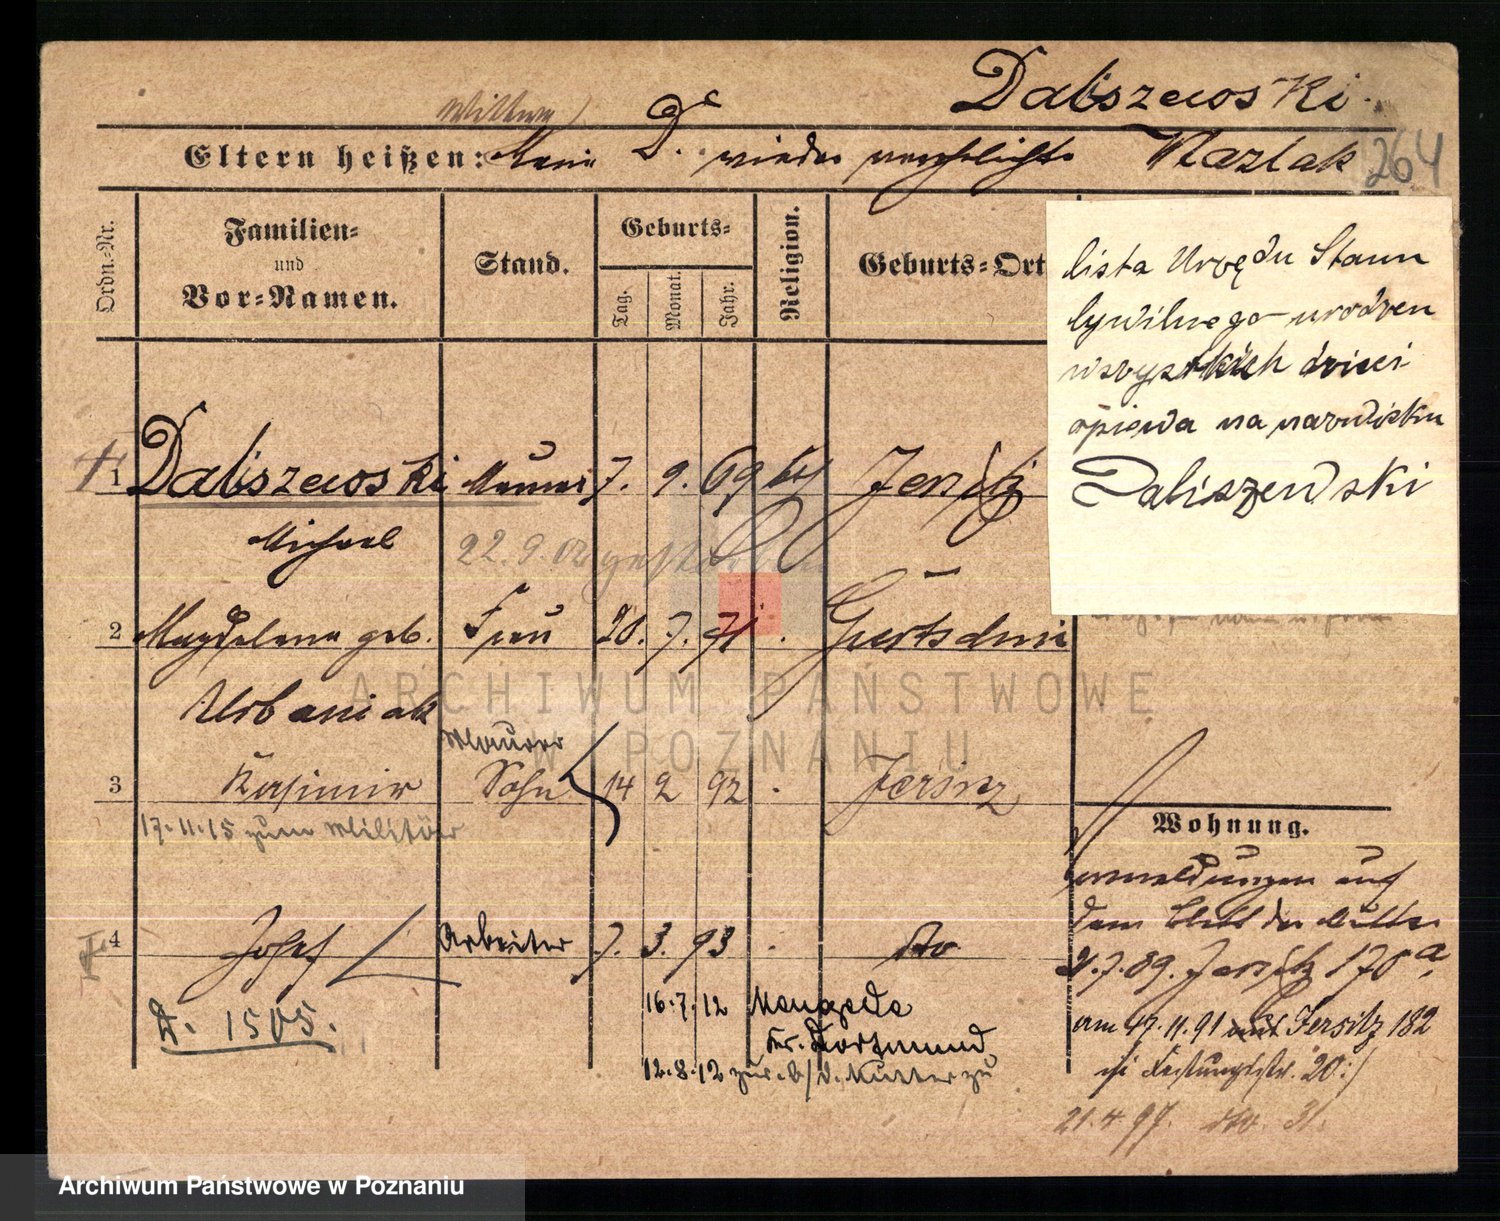 Daliszewski
Wittwe
Eltern heißen: Marie D. wieder verehelichte Mazlak
264
Ordn.-Nr.
Familien-
und
Vor-Namen.
Stand.
Geburts-
Tag.
Monat.
Jahr.
Religion.
Geburts-Ort
lista Urzędu Stanu
Cywilnego urodzen
wszystkich dzieci
opiewa na nazwisku
Daliszewski
1 Daliszewski Maurer 7. 9. 69 kth Jersitz
Michael
22.9.02 gestorben
2 Magdalena geb. Frau 20. 7. 71.
Urbaniak
Maurer
3 Kasimir Sohn 14 2 92 Jersitz
17.11.15 zum Militär
Wohnung.
Anmeldungen auf
dem Blatt der Mutter
2.7.89. Jersitz 178a
am 17.11.91 Jersitz 182
20
21.4.97. do. 31.
4 Josef Arbeiter 7. 3. 93 do
D. 1505.
16.7.12 Mengede
Kr. Dortmund
12.8.12 zur. b/d. Mutter zu
ARCHIWUM PAŃSTWOWE
W POZNANIU
Archiwum Państwowe w Poznaniu